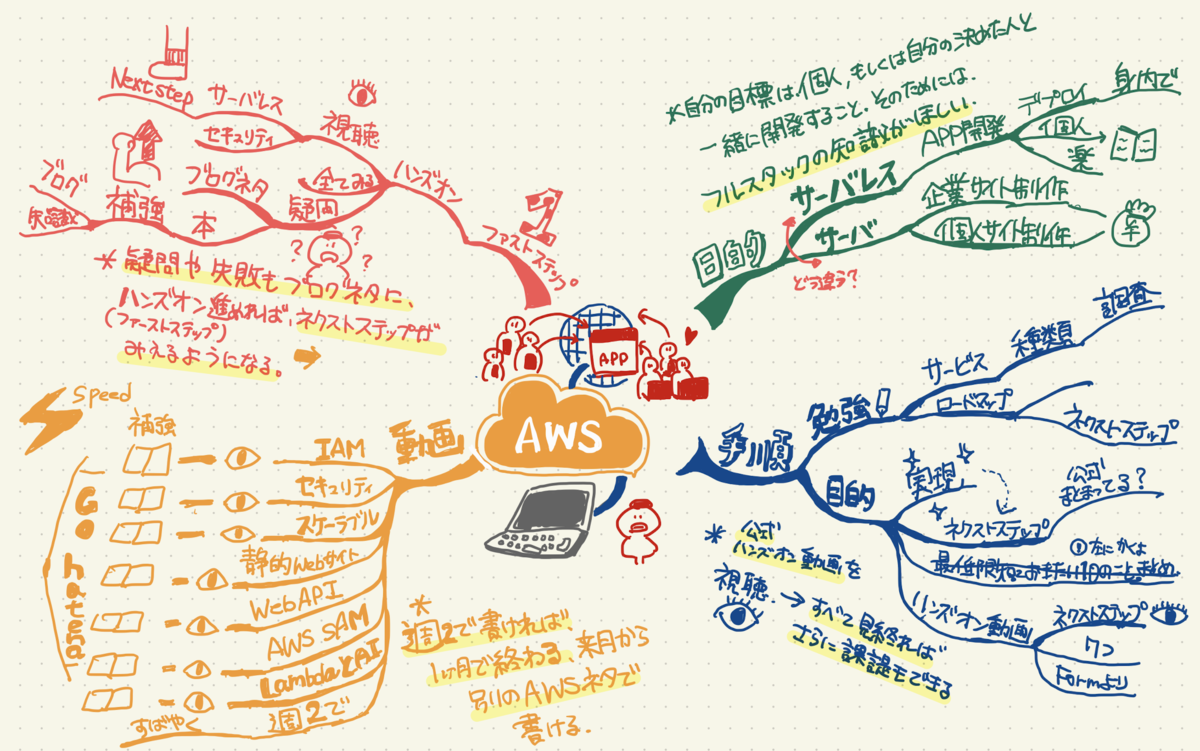 AWS
APP
Next step
サーバレス
セキュリティ
視聴
ハンズオン
ファストステップ。
全てみる
疑問
ブログネタ
本
補強
ブログ
? ? ?
*疑問や失敗もブログネタに、
ハンズオン進めれば、ネクストステップが
(ファーストステップ)
みえるようになる。
*自分の目標は個人,もしくは自分の決めた人と
一緒に開発すること.そのためには.
フルスタックの知識がほしい.
目的
サーバレス
APP開発
デプロイ
身内で
個人
楽
サーバ
企業サイト制作
個人サイト制作
¥
どう違う?
手順
勉強
サービス
種類
調査
ロードマップ
ネクストステップ
目的
実現
ネクストステップ
公式
まとまってる?
①左にかくよ
ハンズオン動画
ネクストステップ
7つ
Formより
*公式
ハンズオン動画を
視聴.
→すべて見終れば
さらに課題もできる
動画
Speed
補強
IAM
セキュリティ
スケーラブル
静的Webサイト
WebAPI
AWS SAM
LambdaとAI
週2で
すばやく
Go hatena
*
週2で書ければ、
1ヶ月で終わる、来月から
別のAWSネタで
書ける.